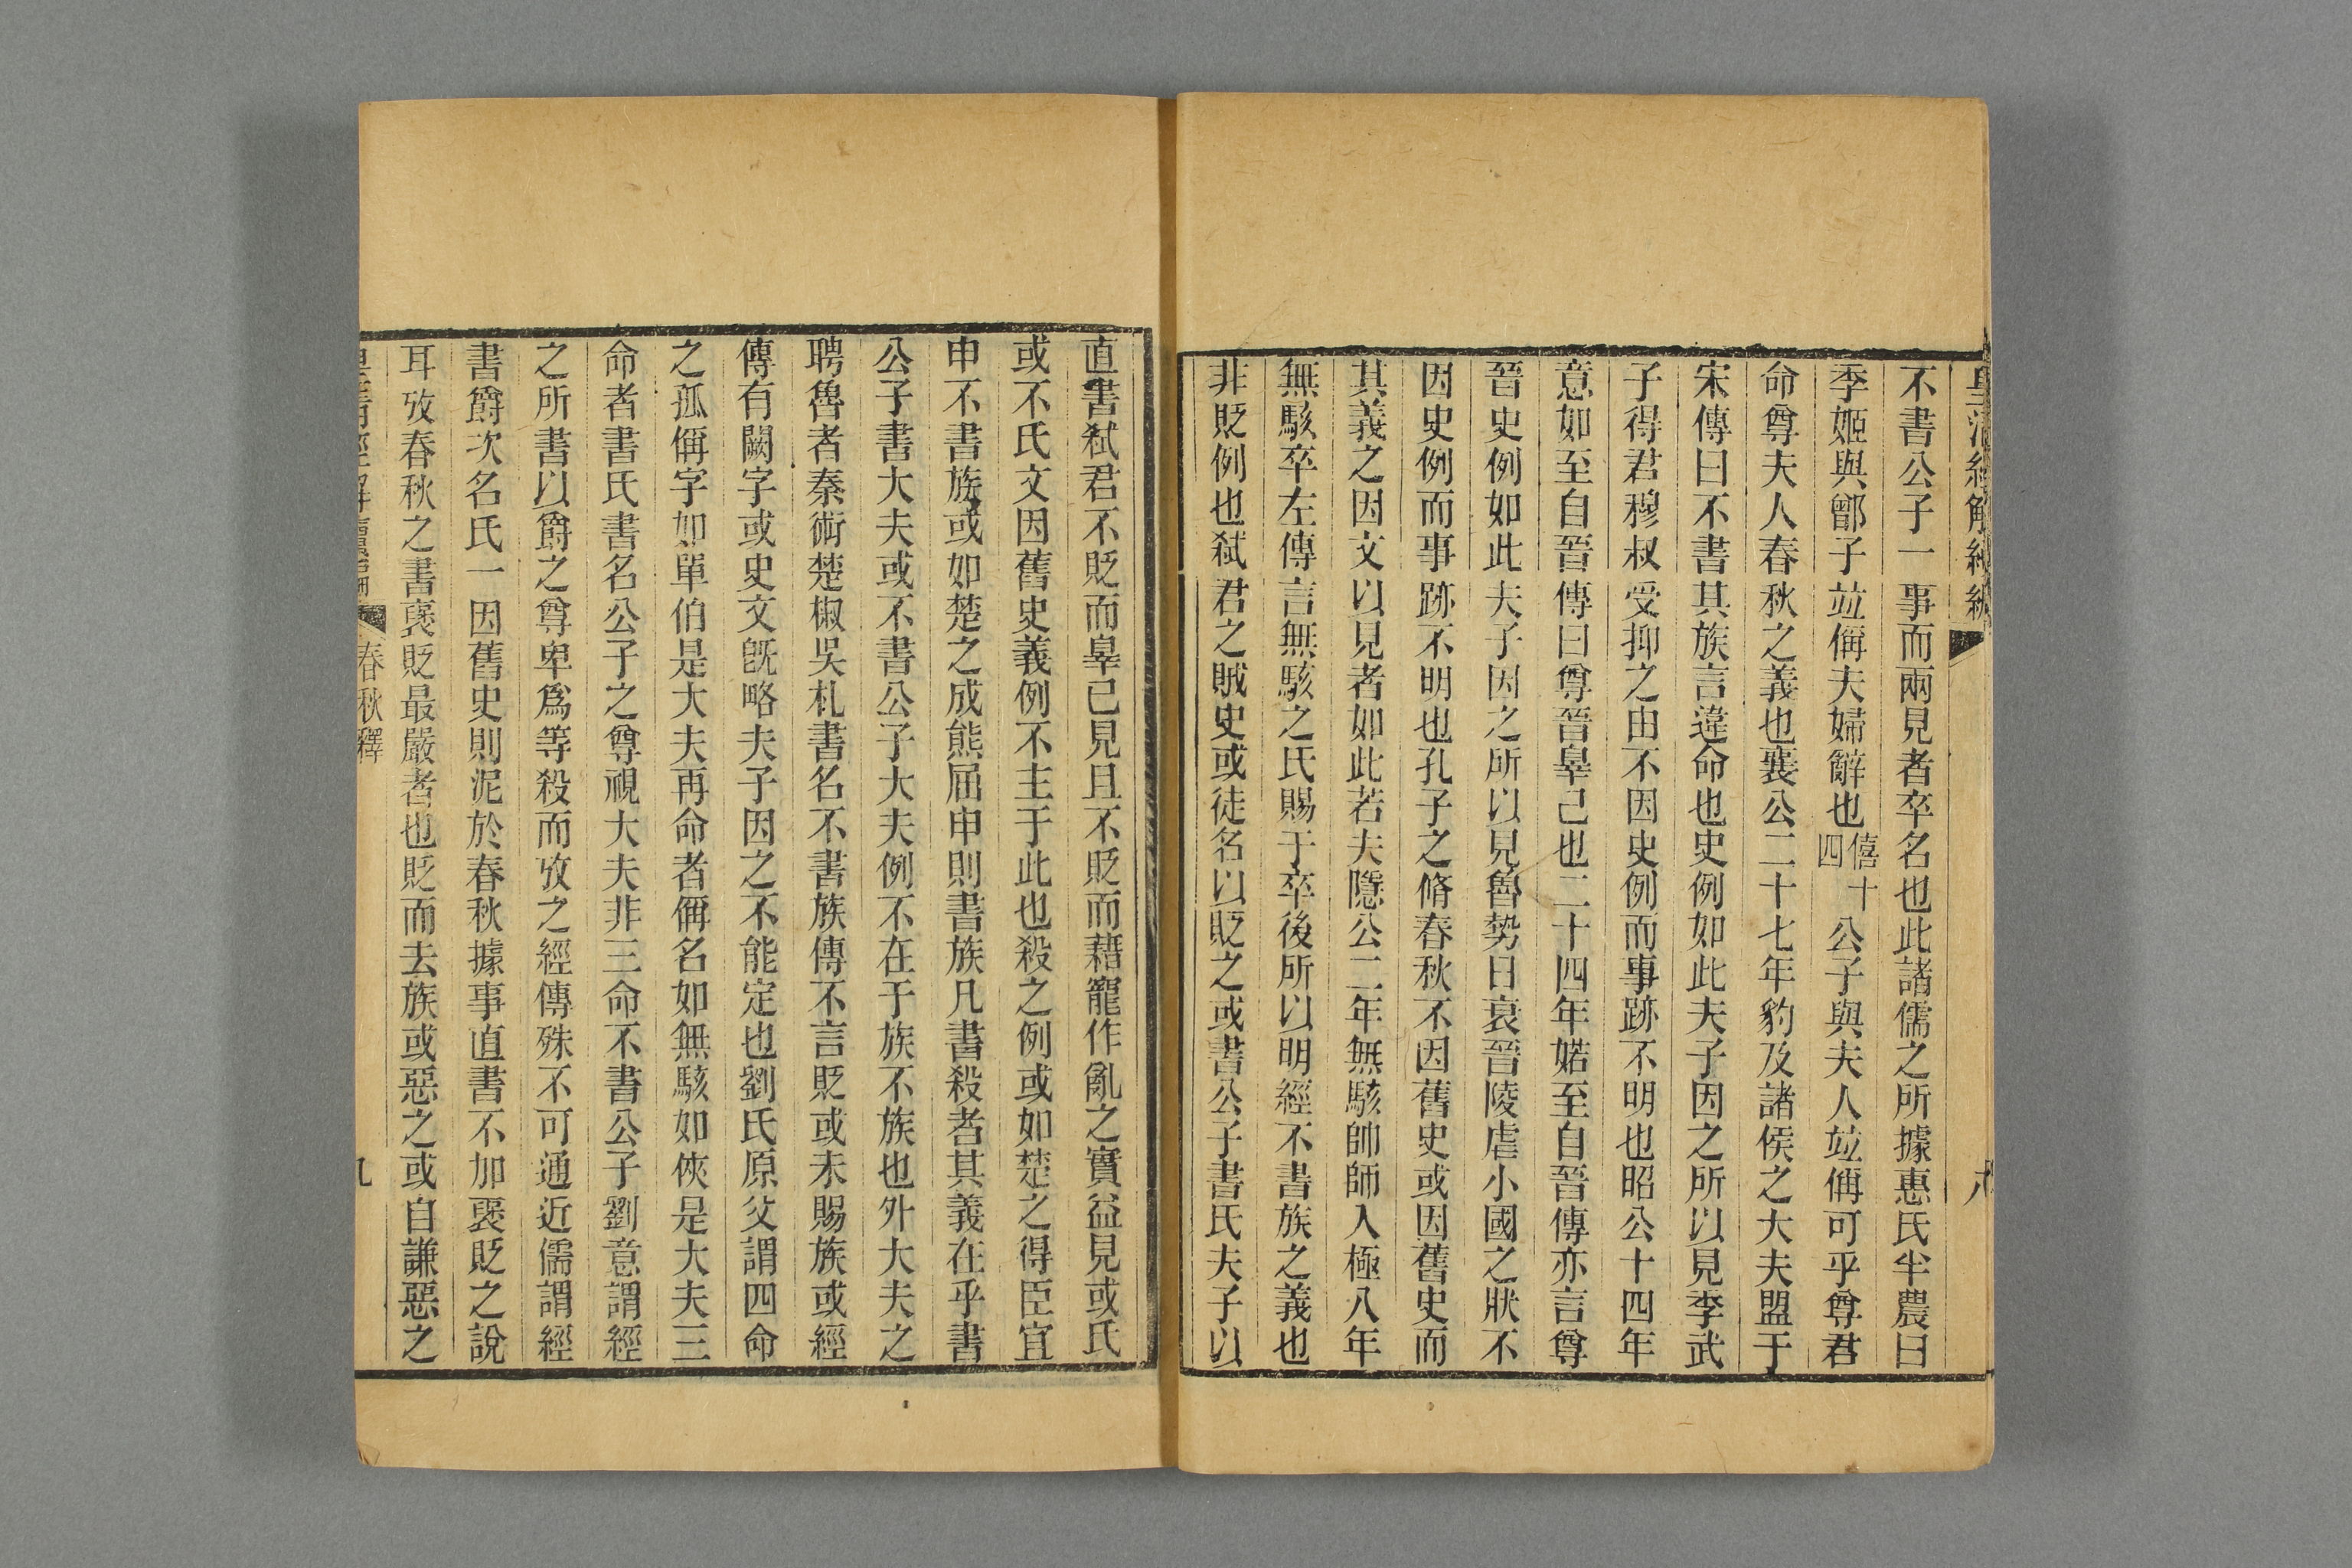 不書公子一事而兩見者卒名也此諸儒之所據惠氏半農曰
季姬與鄫子竝偁夫婦辭也僖十四公子與夫人竝偁可乎尊君
命尊夫人春秋之義也襄公二十七年豹及諸侯之大夫盟于
宋傳曰不書其族言違命也史例如此夫子因之所以見季武
子得君穆叔受抑之由不因史例而事跡不明也昭公十四年
意如至自晉傳曰尊晉辠己也二十四年婼至自晉傳亦言尊
晉史例如此夫子因之所以見魯勢日衰晉陵虐小國之狀不
因史例而事跡不明也孔子之脩春秋不因舊史或因舊史而
其義之因文以見者如此若夫隱公二年無駭帥師入極八年
無駭卒左傳言無駭之氏賜于卒後所以明經不書族之義也
非貶例也弒君之賊史或徒名以貶之或書公子書氏夫子以
直書弒君不貶而辠已見且不貶而藉寵作亂之實益見或氏
或不氏文因舊史義例不主于此也殺之例或如楚之得臣宜
申不書族或如楚之成熊屈申則書族凡書殺者其義在乎書
公子書大夫或不書公子大夫例不在于族不族也外大夫之
聘魯者秦術楚椒吳札書名不書族傳不言貶或未賜族或經
傳有闕字或史文旣略夫子因之不能定也劉氏原父謂四命
之孤偁字如單伯是大夫再命者偁名如無駭如俠是大夫三
命者書氏書名公子之尊視大夫非三命不書公子劉意謂經
之所書以爵之尊卑爲等殺而攷之經傳殊不可通近儒謂經
書爵次名氏一因舊史則泥於春秋據事直書不加襃貶之說
耳攷春秋之書襃貶最嚴者也貶而去族或惡之或自謙惡之
春秋釋
九